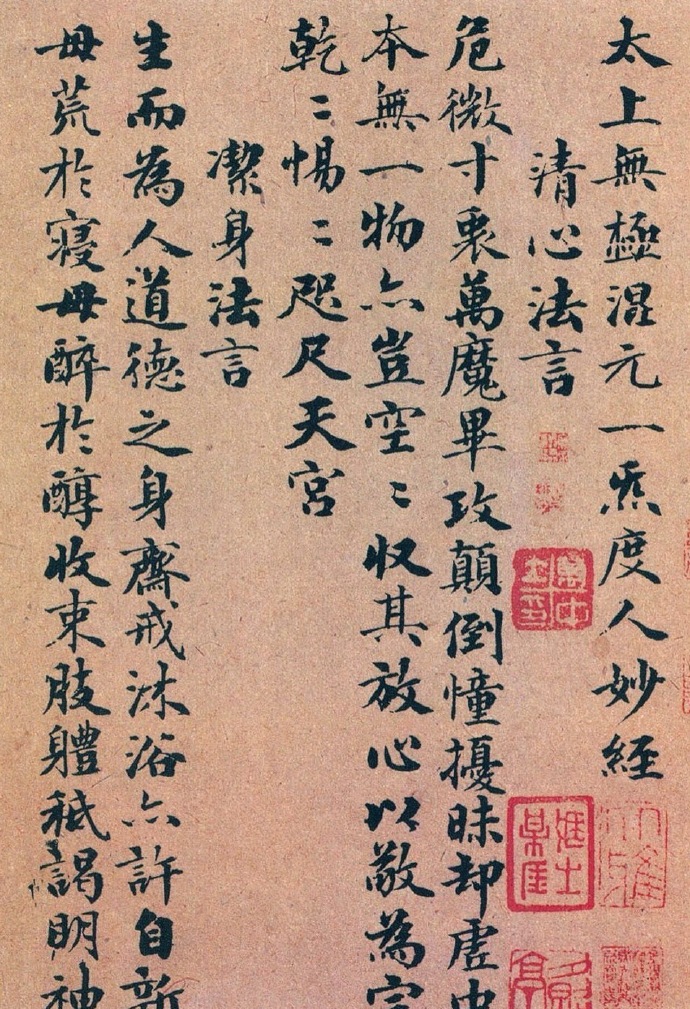 太上無極混元一炁度人妙經
清心法言
危微寸衷萬魔畢攻顛倒憧擾昧却虛中
本無一物亦豈空〻收其放心以敬為宗
乾〻惕〻咫尺天宮
潔身法言
生而為人道德之身齋戒沐浴亦許自新
毋荒於寢毋醉於醇收束肢體秪謁明神